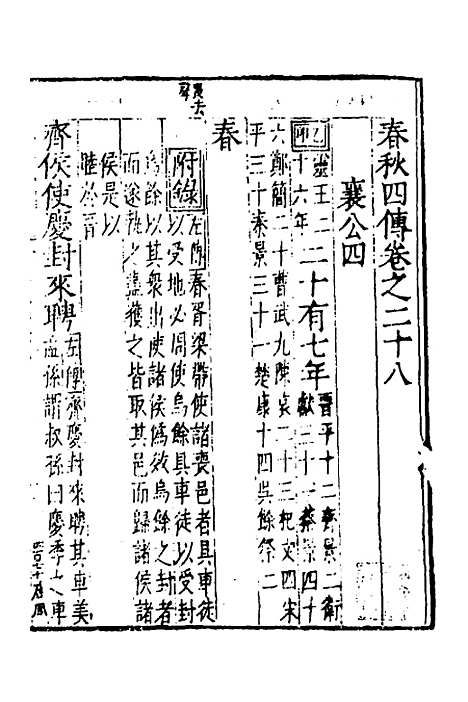 春秋四傳卷之二十八
襄公四
乙卯 靈王二十六年 二十有七年 晉平十二齊景二衛獻三十一蔡景四十六鄭簡二十曹武九陳哀二十三杞文四宋平三十秦景三十一楚康十四吳餘祭二
春
附錄 左傳春胥梁帶使諸喪邑者具車徒
以受地必周使烏餘具車徒以受封
烏餘以其衆出使諸侯僞效烏餘之封者
而遂執之盡獲之皆取其邑而歸諸侯諸
侯是以
睦於晉
齊侯使慶封來聘 左傳齊慶封來聘其車美孟孫謂叔孫曰慶季之車